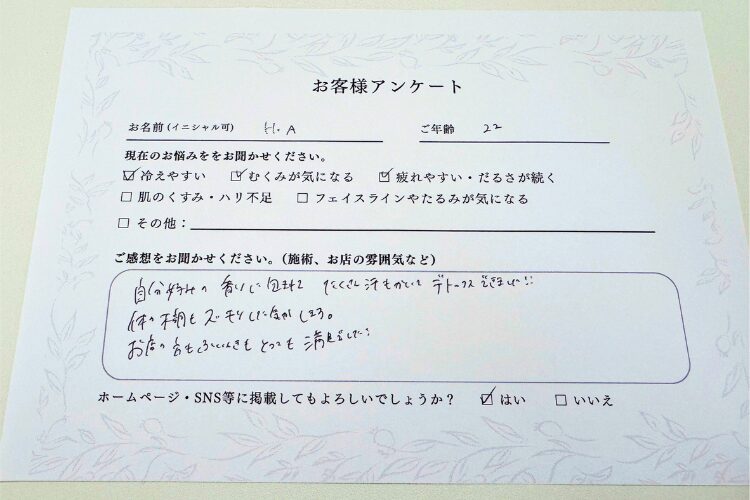 お客様アンケート
お名前(イニシャル可) H.A ご年齢 22
現在のお悩みををお聞かせください。
☑冷えやすい ☑むくみが気になる ☑疲れやすい・だるさが続く
☐肌のくすみ・ハリ不足 ☐フェイスラインやたるみが気になる
☐その他:
ご感想をお聞かせください。(施術、お店の雰囲気など)
自分好みの香りに包まれて たくさん汗もかいて デトックスできました!!
体の不調もスッキリした気がします。
お店の ふんいきも とっても 満足でした!
ホームページ・SNS等に掲載してもよろしいでしょうか? ☑はい ☐いいえ